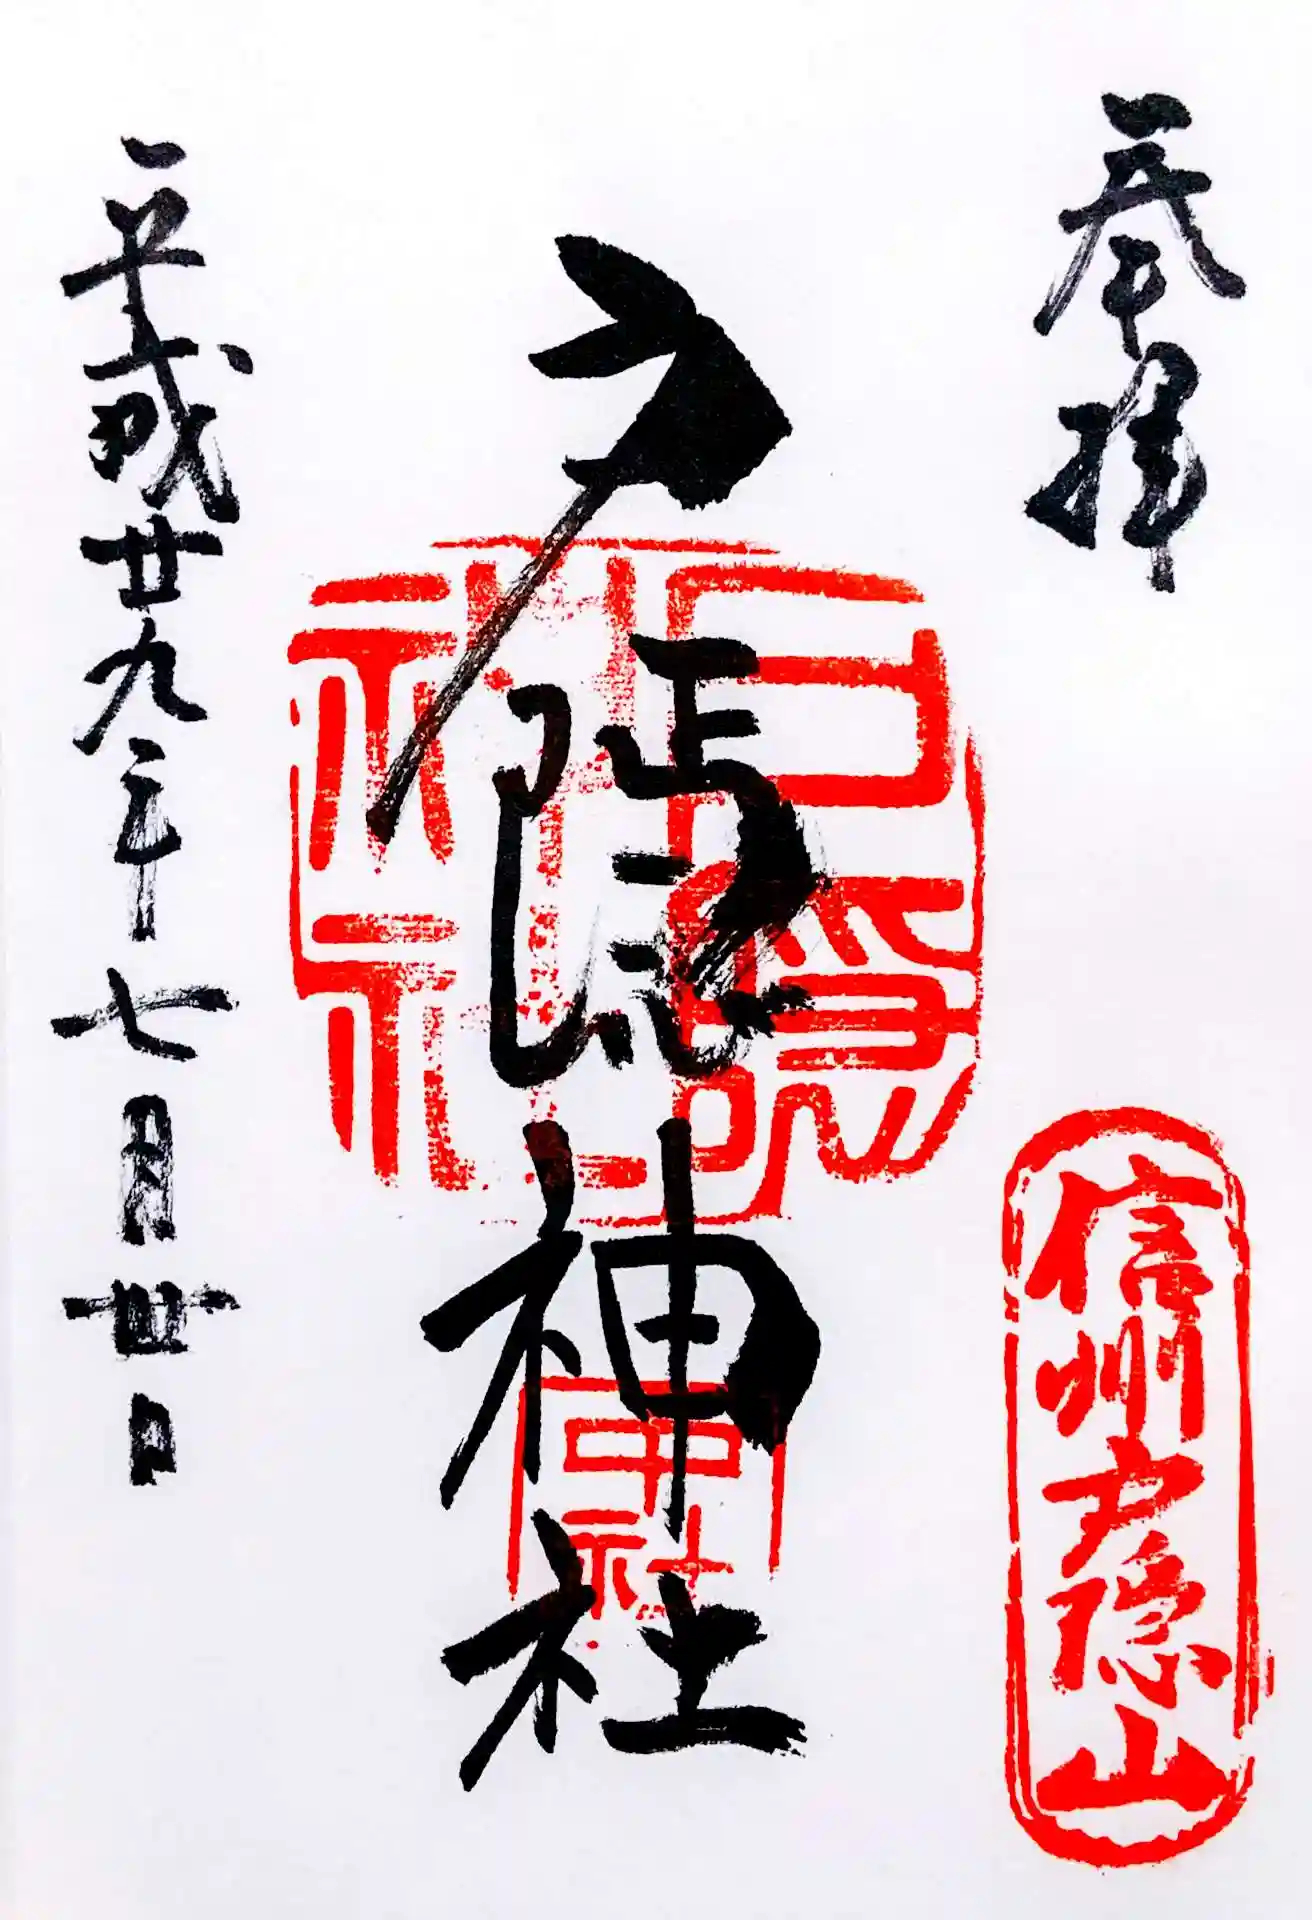 奉拝
信州戸隠山
戸隠神社
戸隠神社
中社
平成廿九年七月卅日